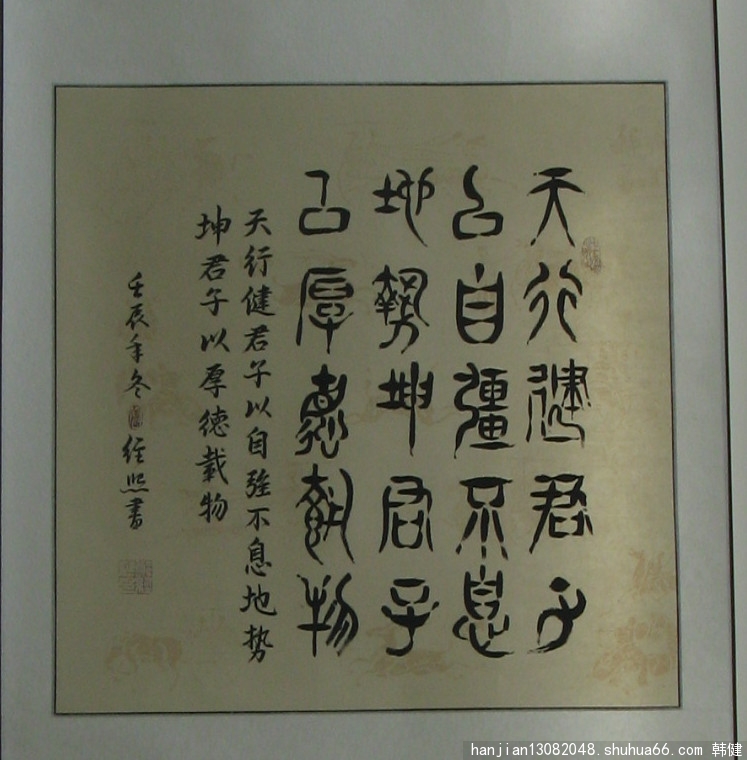 天行健君子
以自彊不息
地势坤君子
以厚德载物
天行健君子以自强不息地势
坤君子以厚德载物
壬辰年冬 经照书
hanjian13082048.shuhua66.com 韩健